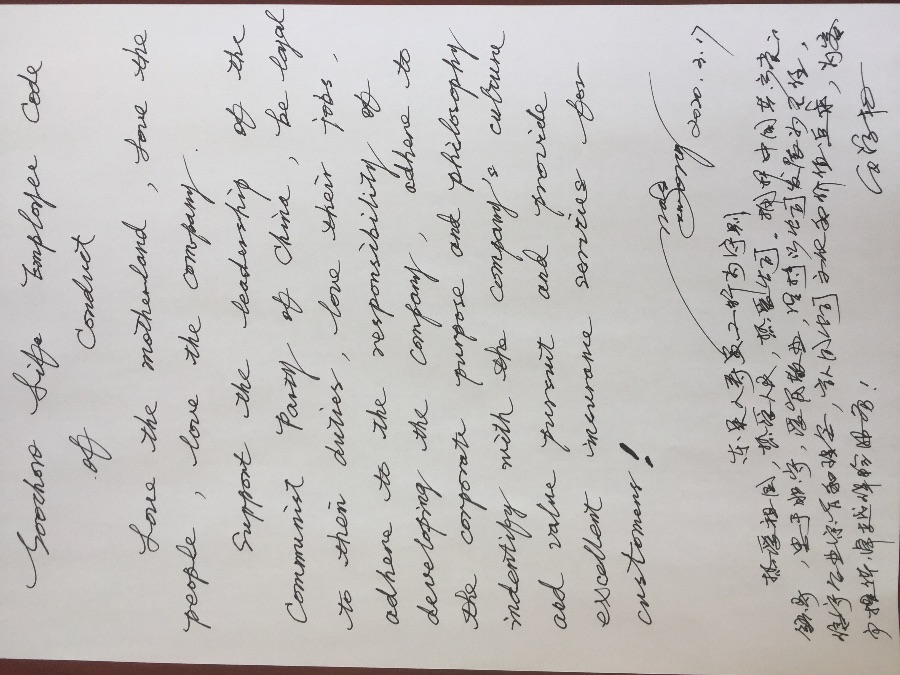 Soochow Life Employee Code
of Conduct
Love the motherland, love the
people, love the company.
Support the leadership of the
Communist Party of China, be loyal
to their duties, love their jobs,
adhere to the responsibility of
developing the company, adhere to
the corporate purpose and philosophy
indentify with the company's culture
and value pursuit and provide
excellent insurance service for
customers!
2020.3.17
东吴人寿员工行为守则
热爱祖国,热爱人民,热爱公司。拥护中国共产党的
领导,忠于职守,爱岗敬业,坚持以公司发展为己任,
恪守企业宗旨和理念,认同公司文化和价值追求,为客
户提供卓越保险服务!